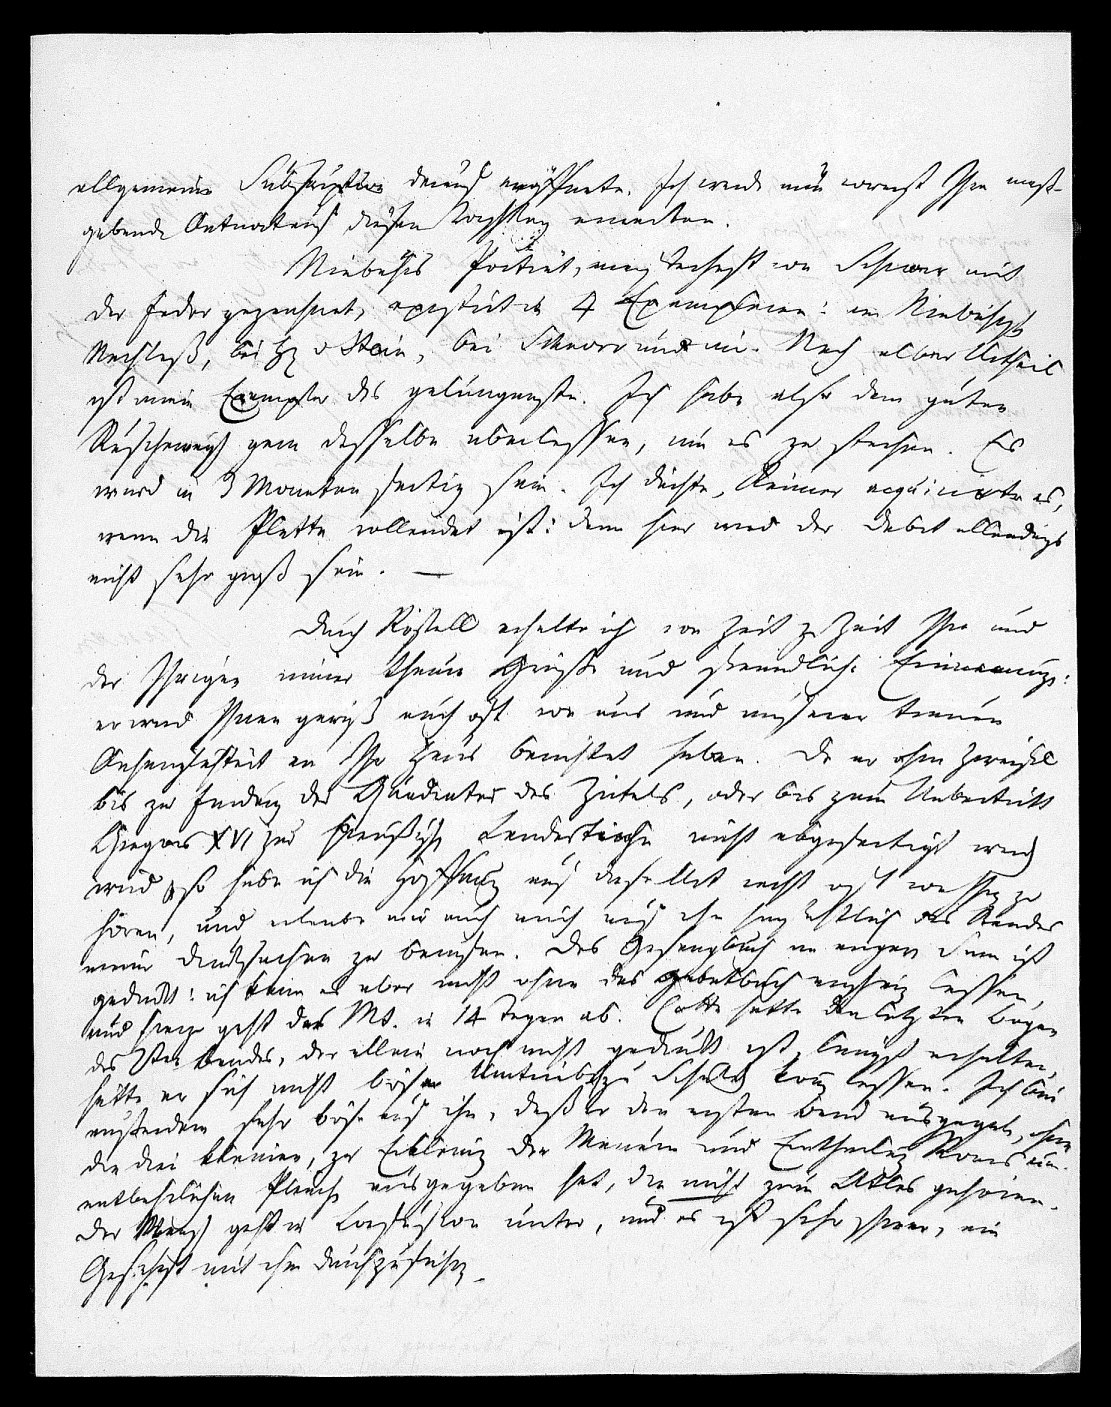 allgemeine Subscription darauf eröffnete. Ich werde nun vorerst Ihre maß-
gebende Antwort auf diesen Vorschlag erwarten.
Niebuhrs Portrait, von Schnorr mit
der Feder gezeichnet, existirt in 4 Exemplaren: im Niebuhrschen
Nachlaß, bei H v Stein, bei Schnorr und mir. Nach aller Urtheil
ist mein Exemplar das gelungenste. Ich habe also dem guten
Ruscheweyh gern dasselbe überlassen, um es zu stechen. Es
wird in 3 Monaten fertig sein. Ich dächte, Reimer acquirirte es,
wenn die Platte vollendet ist: denn hier wird der Debit allerdings
nicht sehr groß sein. —
Durch Röstell erhalte ich von Zeit zu Zeit Ihre und
der Ihrigen mir theure Grüße und freundliche Erinnerungen:
er wird Ihnen gewiß auch oft von uns und unserer treuen
Anhänglichkeit an Ihr Haus berichtet haben. Da er ohne Zweifel
bis zur Findung der Quadratur des Zirkels, oder bis zum Uebertritt
Gregors XVI zur Preußischen Landeskirche nicht abgefertigt werden
wird, so habe ich die Hoffnung auf diese Art recht oft von Ihnen zu
hören, und erlaube mir auch mich auf ihn hinsichtlich des Standes
meiner Drucksachen zu berufen. Das Gesangbuch im engern Sinn ist
gedruckt: ich kann es aber nicht ohne das Gebetbuch ausgehen lassen,
und hievon geht das Ms. in 14 Tagen ab. Cotta hätte den letzten Bogen
des Bandes, der allein noch nicht gedruckt ist, längst erhalten,
hätte er sich nicht böser Umtriebe zu Schulden kommen lassen. Ich bin
außerdem sehr böse auf ihn, daß er den ersten Band ausgegeben, ohne
die drei kleinen, zur Erklärung der Mauern und Eintheilung Roms un-
entbehrlichen Pläne ausgegeben hat, die nicht zum Atlas gehören.
Der Mensch geht in unter, und es ist sehr schwer, ein
Geschäft mit ihm durchzuführen.